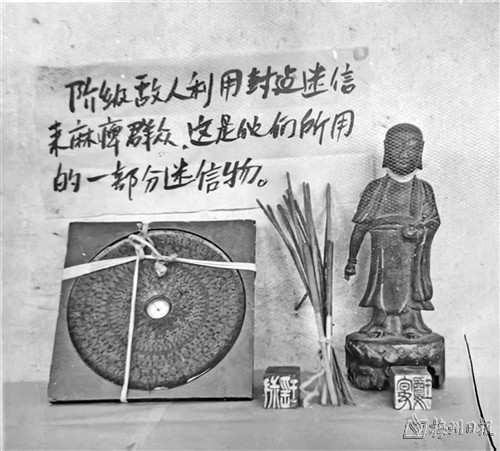 阶级敌人利用封边迷信
来麻痹群众，这是他们所用
的一部分迷信物。
梅州日报